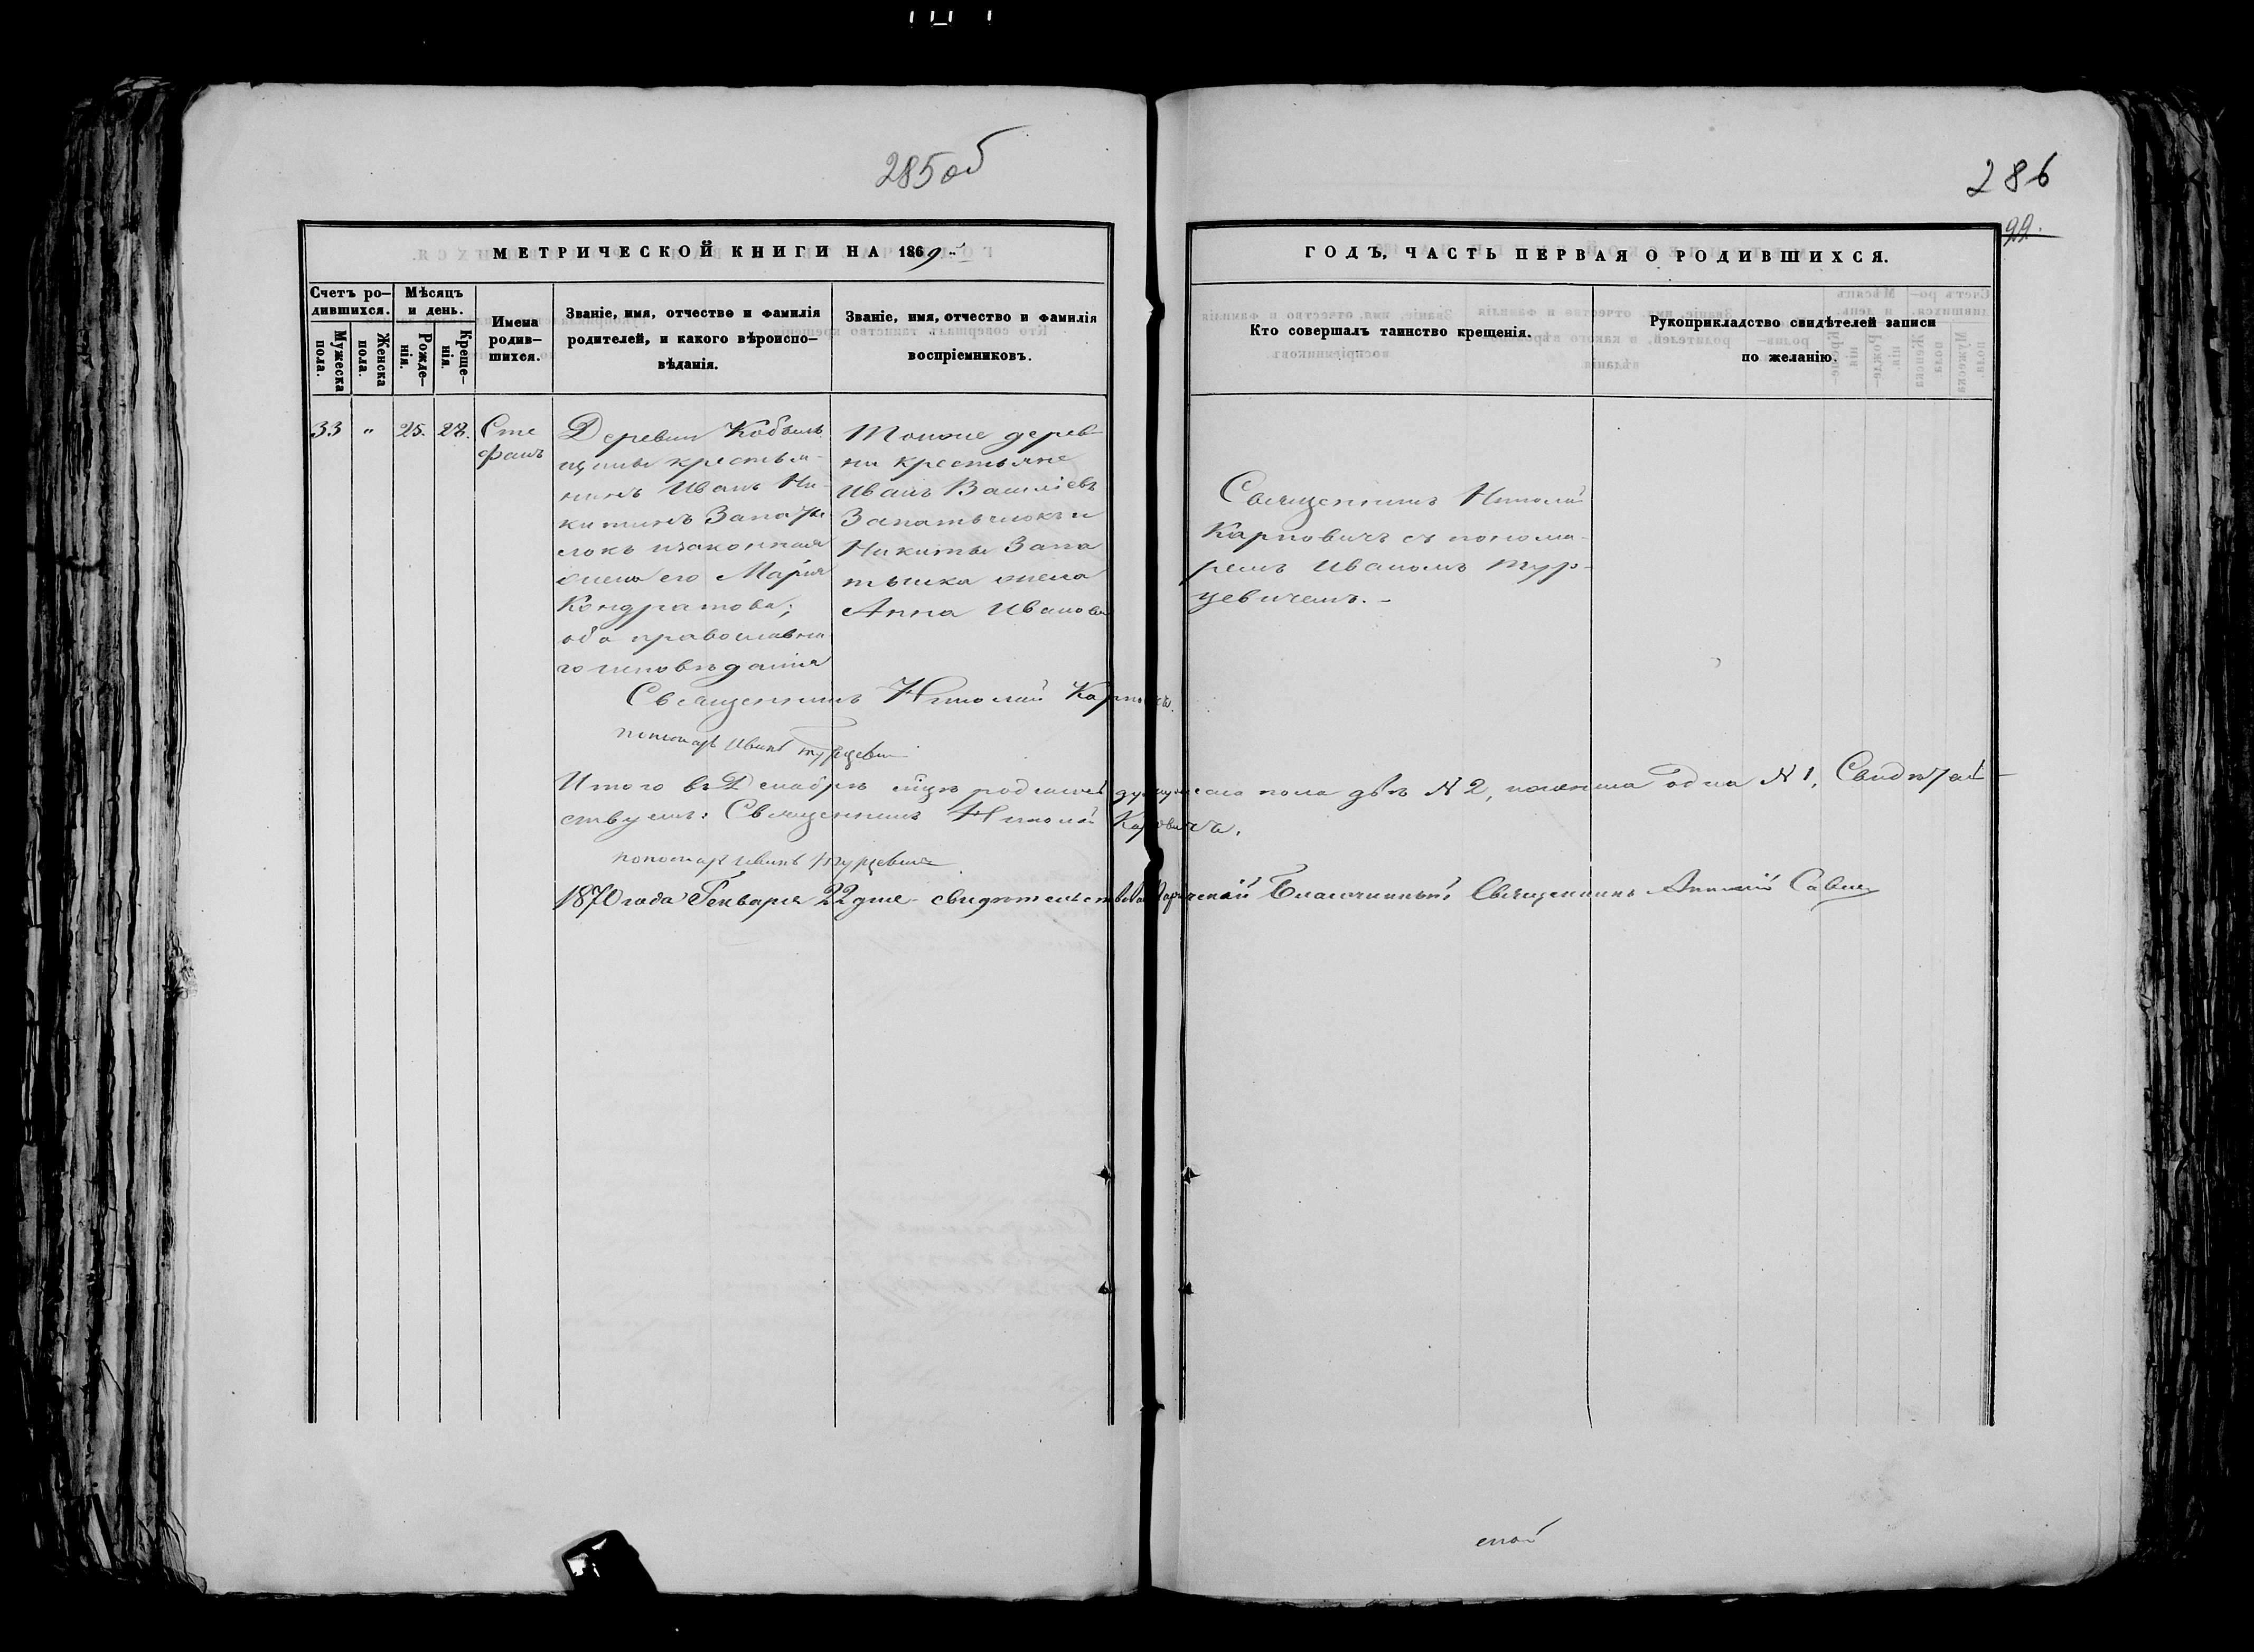 285 об
286
22.
МЕТРИЧЕСКОЙ КНИГИ НА 1869
ГОДЪ, ЧАСТЬ ПЕРВАЯ О РОДИВШИХСЯ.
Счетъ ро-
дившихся.
Мужеска
пола.
Женска
пола.
Мѣсяцъ
и день.
Рожде-
нія.
Креще-
нія.
Имена
родив-
шихся.
Званіе, имя, отчество и фамилія
родителей, и какого вѣроиспо-
вѣданія.
Званіе, имя, отчество и фамилія
воспріемниковъ.
Кто совершалъ таинство крещенія.
Рукоприкладство свидѣтелей записи
по желанію.
33 " 25. 28.
Сте
фанъ
Деревни
щины крестья-
нинъ Иванъ Ни-
китинъ
законная
жена его Марія
Кондратова;
оба православна
го исповѣданія
Тойже дерев-
ни крестьяне
Иванъ Василіевъ
Никиты Запа
жена
Анна Иванова
Священникъ Николай
Карповичъ съ понома-
ремъ Иваномъ Тур-
цевичемъ.-
Священникъ Николай Карповичъ.
пономарь Иванъ Турцевич
Итого въ Декабрѣ пола N 2, одна N 1, Свидѣтель-
ствуемъ: Священникъ Николай Карповичъ.
пономарь Иванъ Турцевичъ
1870 года Генваря 22 дня Благочинный Священникъ